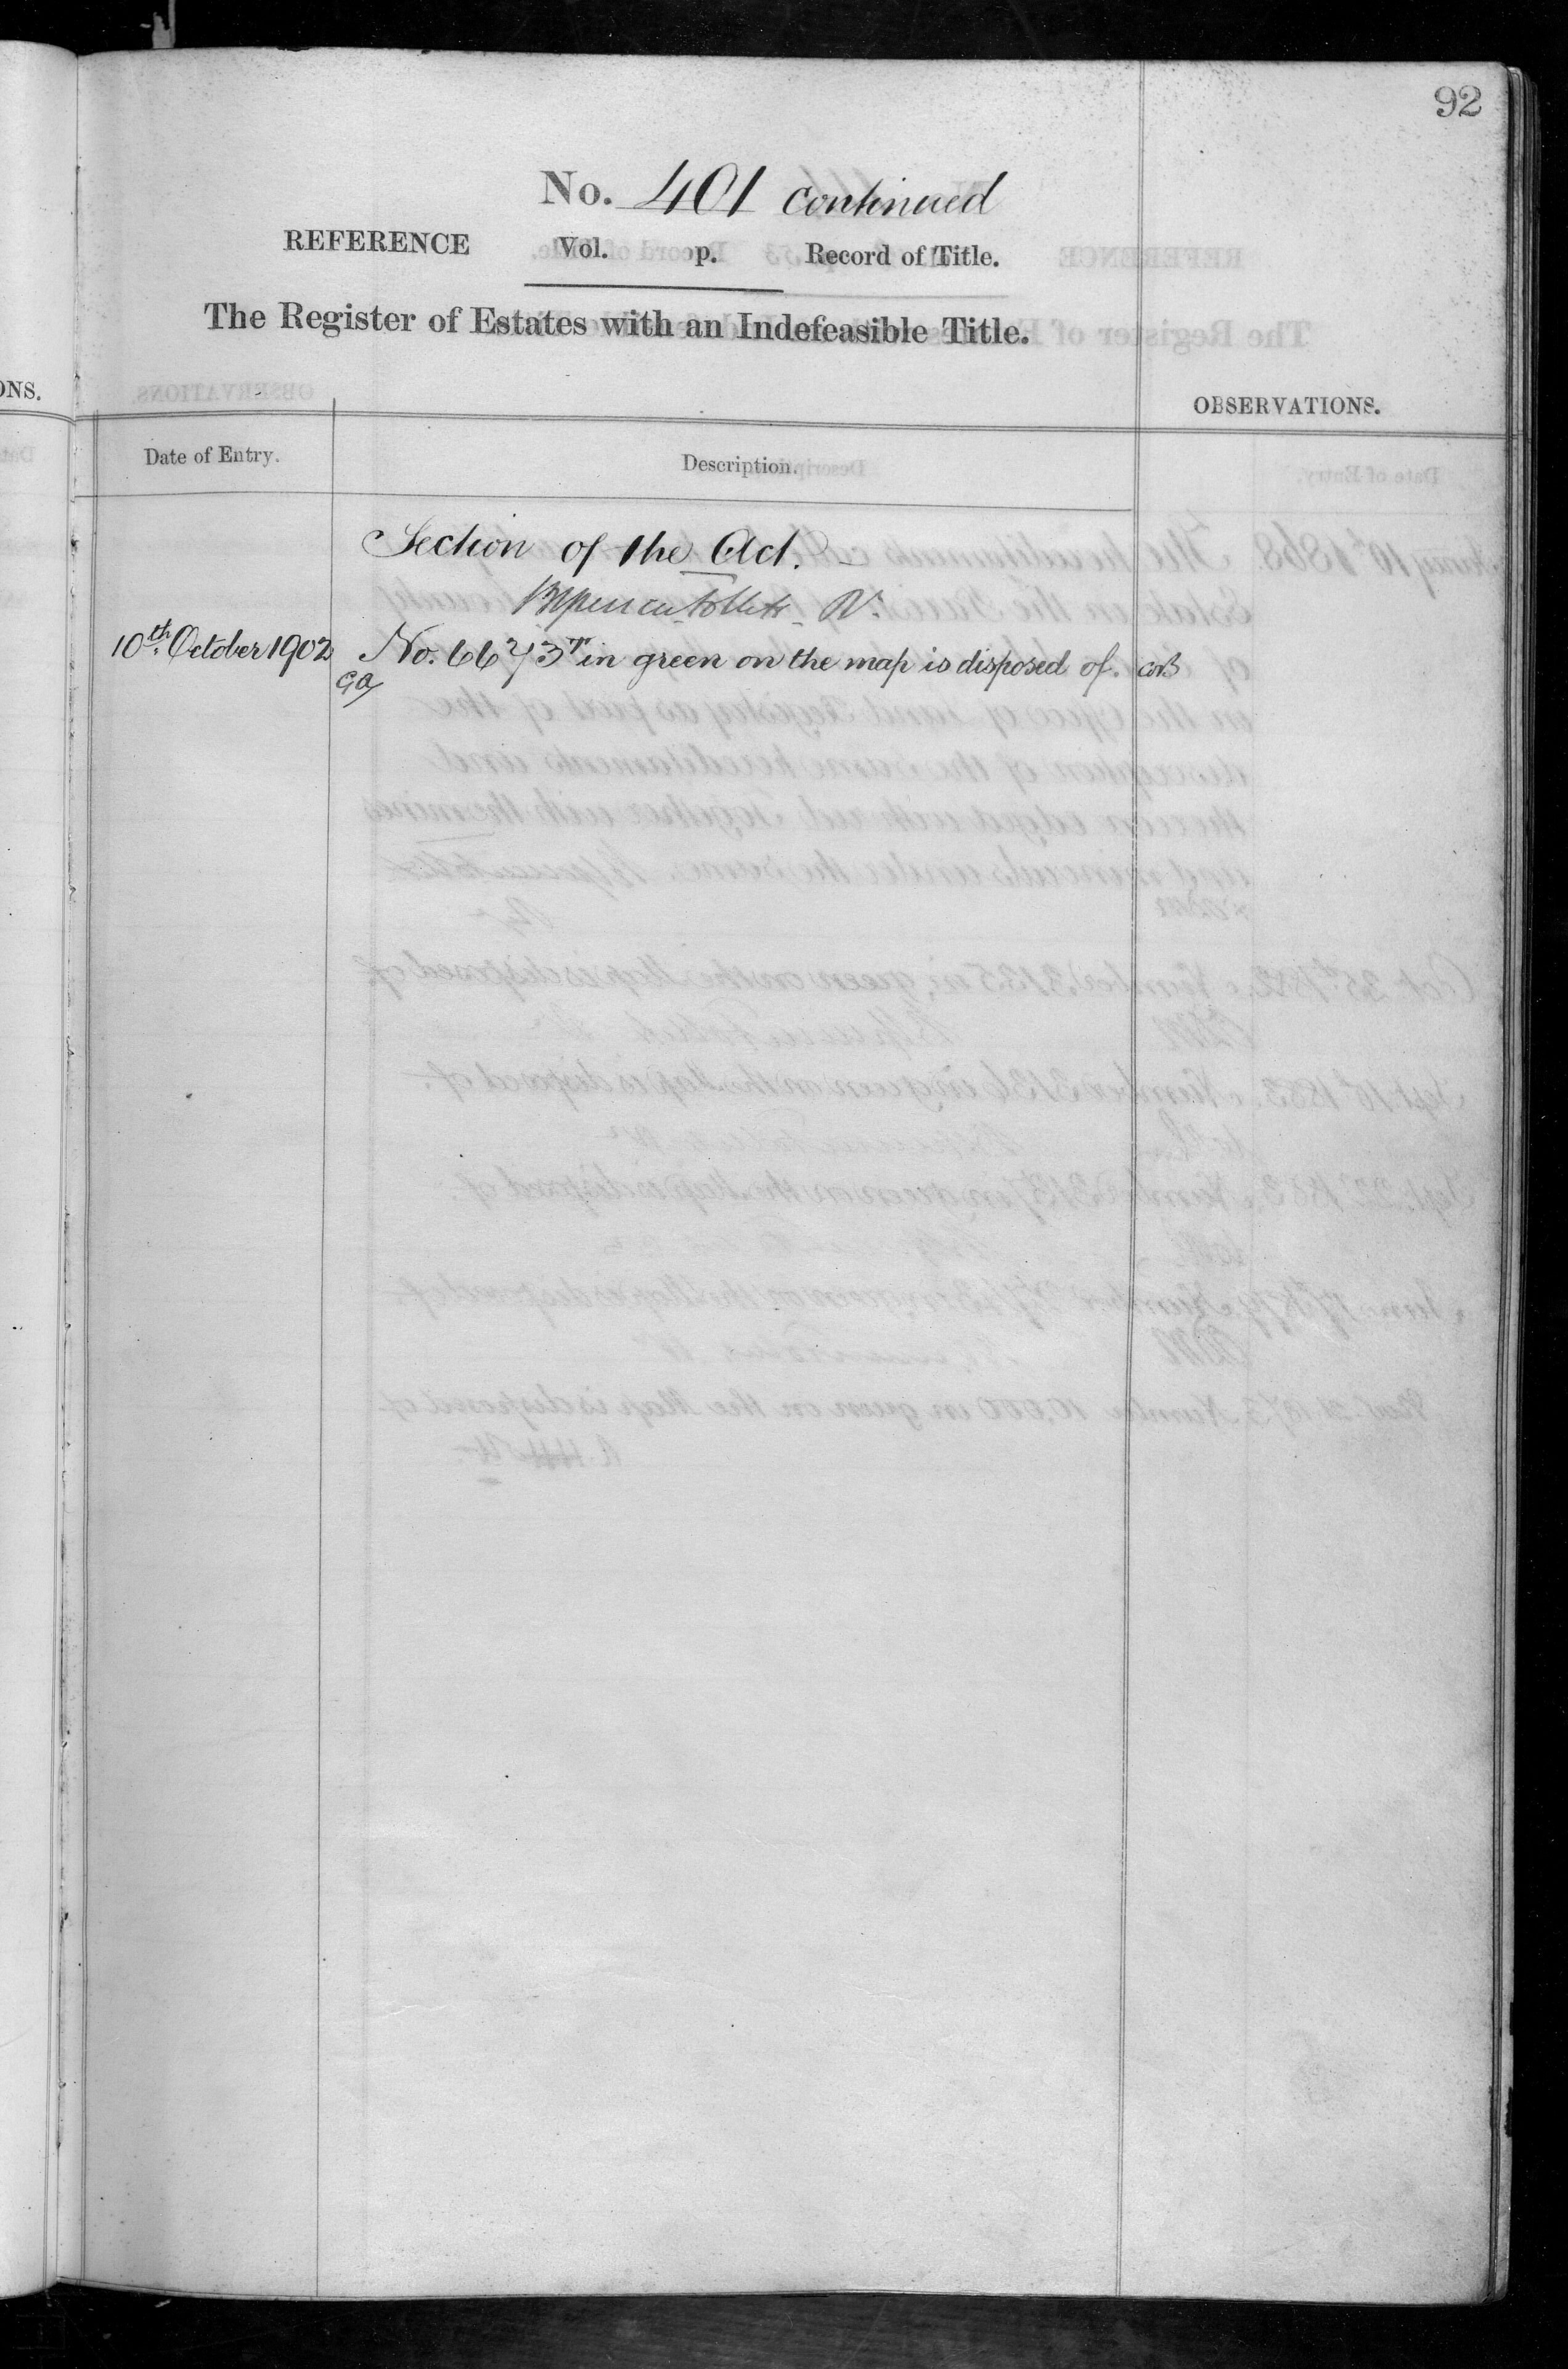 92
No. 401 continued
REFERENCE Vol. p. Record of Title.
The Register of Estates with an Indefeasible Title.
ONS.
OBSERVATIONS.
Date of Entry. Description.
Section of the Act.
10th October 1902 No. 6673 in green on the map is disposed of.